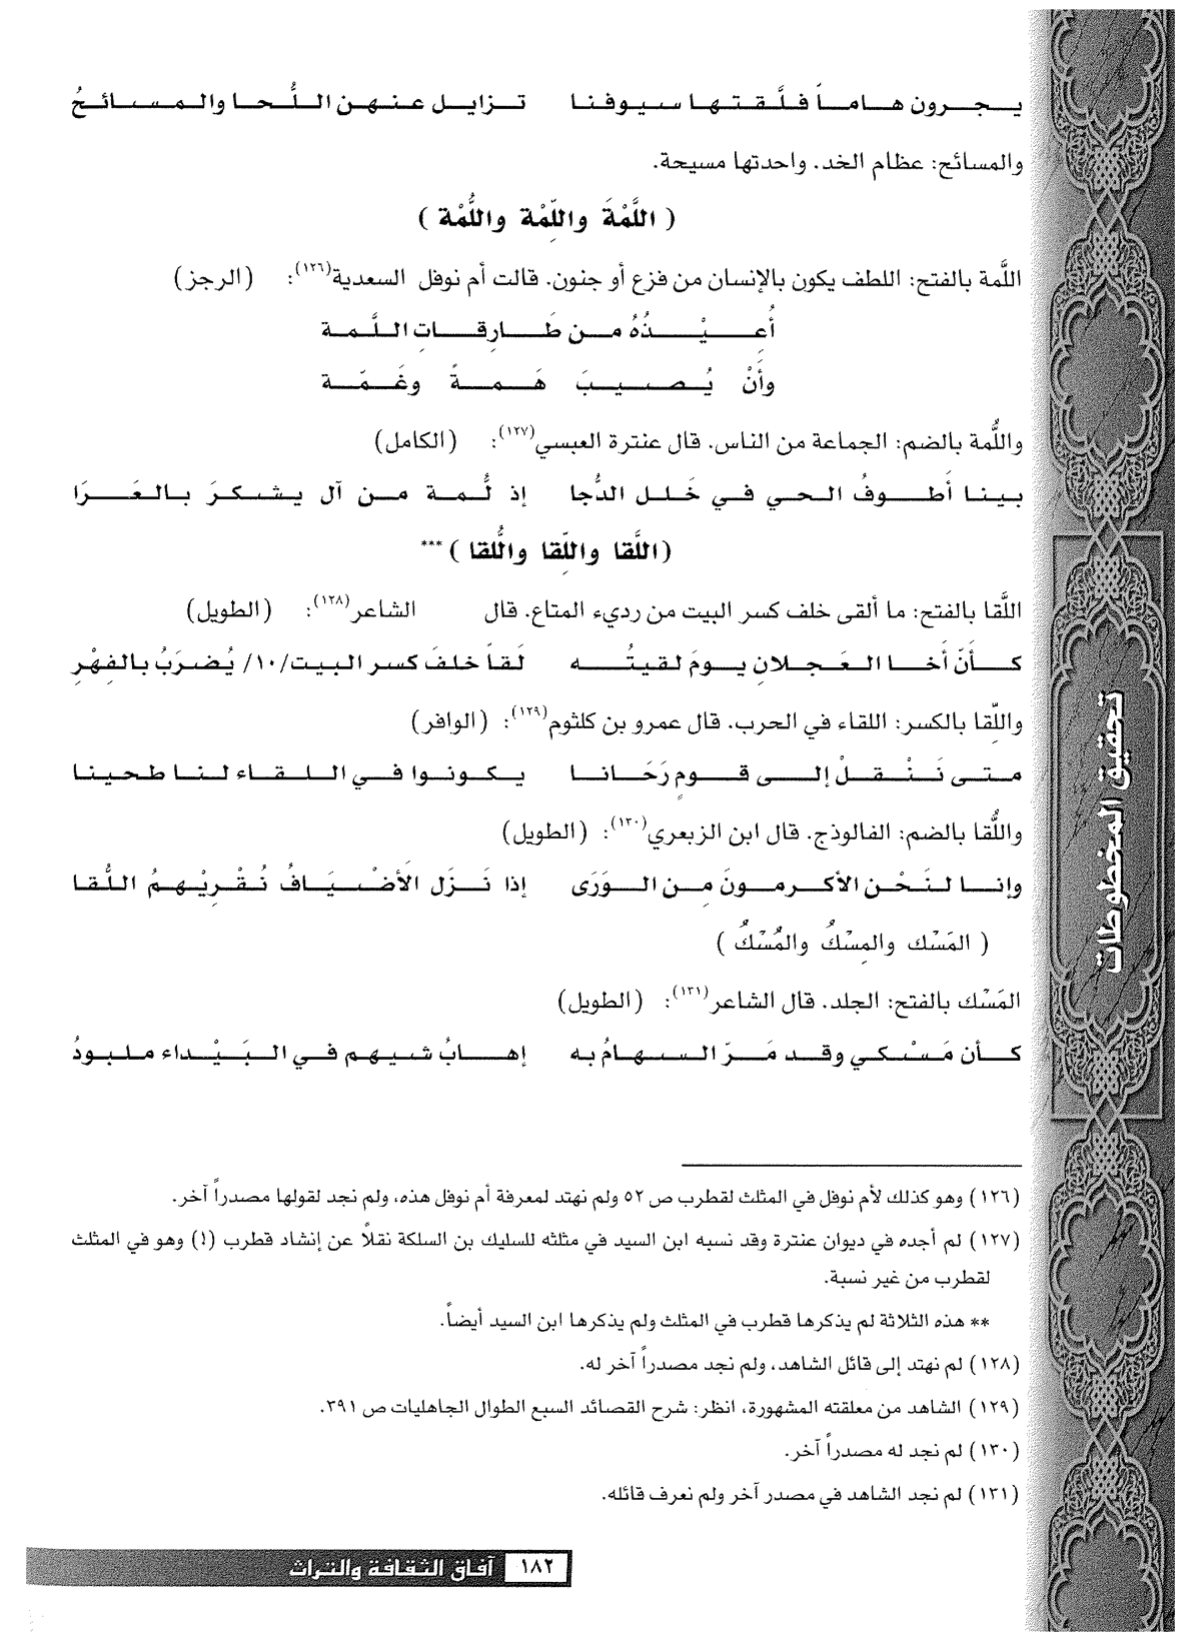 يجرون هاماً فلَّقتها سيوفنا تزايل عنهن اللُّحا والمسائحُ
والمسائح: عظام الخد. واحدتها مسيحة.
( اللَّمْةَ واللِّمْة واللُّمْة )
اللَّمة بالفتح: اللطف يكون بالإنسان من فزع أو جنون. قالت أم نوفل السعدية(١٢٦): (الرجز)
أُعِيْذُهُ من طَارِقاتِ اللَّمة
وأَنْ يُصيبَ هَمةً وغَمّة
واللُّمة بالضم: الجماعة من الناس. قال عنترة العبسي(١٢٧): (الكامل)
بينا أَطوفُ الحي في خَلل الدُّجا إذ لُمة من آل يشكرَ بالعَرَا
(اللَّقا واللِّقا واللُّقا) ***
اللَّقا بالفتح: ما ألقى خلف كسر البيت من رديء المتاع. قال الشاعر(١٢٨): (الطويل)
كأنّ أخا العَجلانِ يومَ لقيتُه لَقاً خلفَ كسر البيت/١٠/ يُضرَبُ بالفِهْرِ
واللِّقا بالكسر: اللقاء في الحرب. قال عمرو بن كلثوم(١٢٩): (الوافر)
متى نَنْقلْ إلى قومٍ رَحَانا يكونوا في اللقاء لنا طحينا
واللُّقا بالضم: الفالوذج. قال ابن الزبعري(١٣٠): (الطويل)
وإنا لنَحْن الأكرمونَ مِن الوَرَى إذا نَزَل الأضْيَافُ نُقْرِيْهمُ اللُّقا
( المَسْك والمِسْكُ والمُسْكُ )
المَسْك بالفتح: الجلد. قال الشاعر(١٣١): (الطويل)
كأن مَسْكي وقد مَرّ السهامُ به إهابُ شيهم في البَيْداء ملبودُ
(١٢٦) وهو كذلك لأم نوفل في المثلث لقطرب ص ٥٢ ولم نهتد لمعرفة أم نوفل هذه، ولم نجد لقولها مصدراً آخر.
(١٢٧) لم أجده في ديوان عنترة وقد نسبه ابن السيد في مثلثه للسليك بن السلكة نقلاً عن إنشاد قطرب (!) وهو في المثلث
لقطرب من غير نسبة.
** هذه الثلاثة لم يذكرها قطرب في المثلث ولم يذكرها ابن السيد أيضاً.
(١٢٨) لم نهتد إلى قائل الشاهد، ولم نجد مصدراً آخر له.
(١٢٩) الشاهد من معلقته المشهورة، انظر: شرح القصائد السبع الطوال الجاهليات ص ٣٩١.
(١٣٠) لم نجد له مصدراً آخر.
(١٣١) لم نجد الشاهد في مصدر آخر ولم نعرف قائله.
١٨٢ آفاق الثقافة والتراث
تحقيق المخطوطات